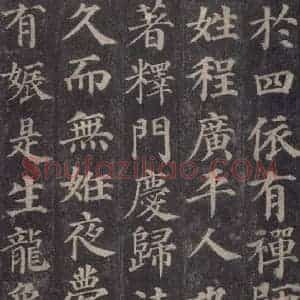 於四依有禪師
姓程廣平人
著釋門慶歸
久而無姙夜夢
有娠是生龍
Shufaziliao.COM